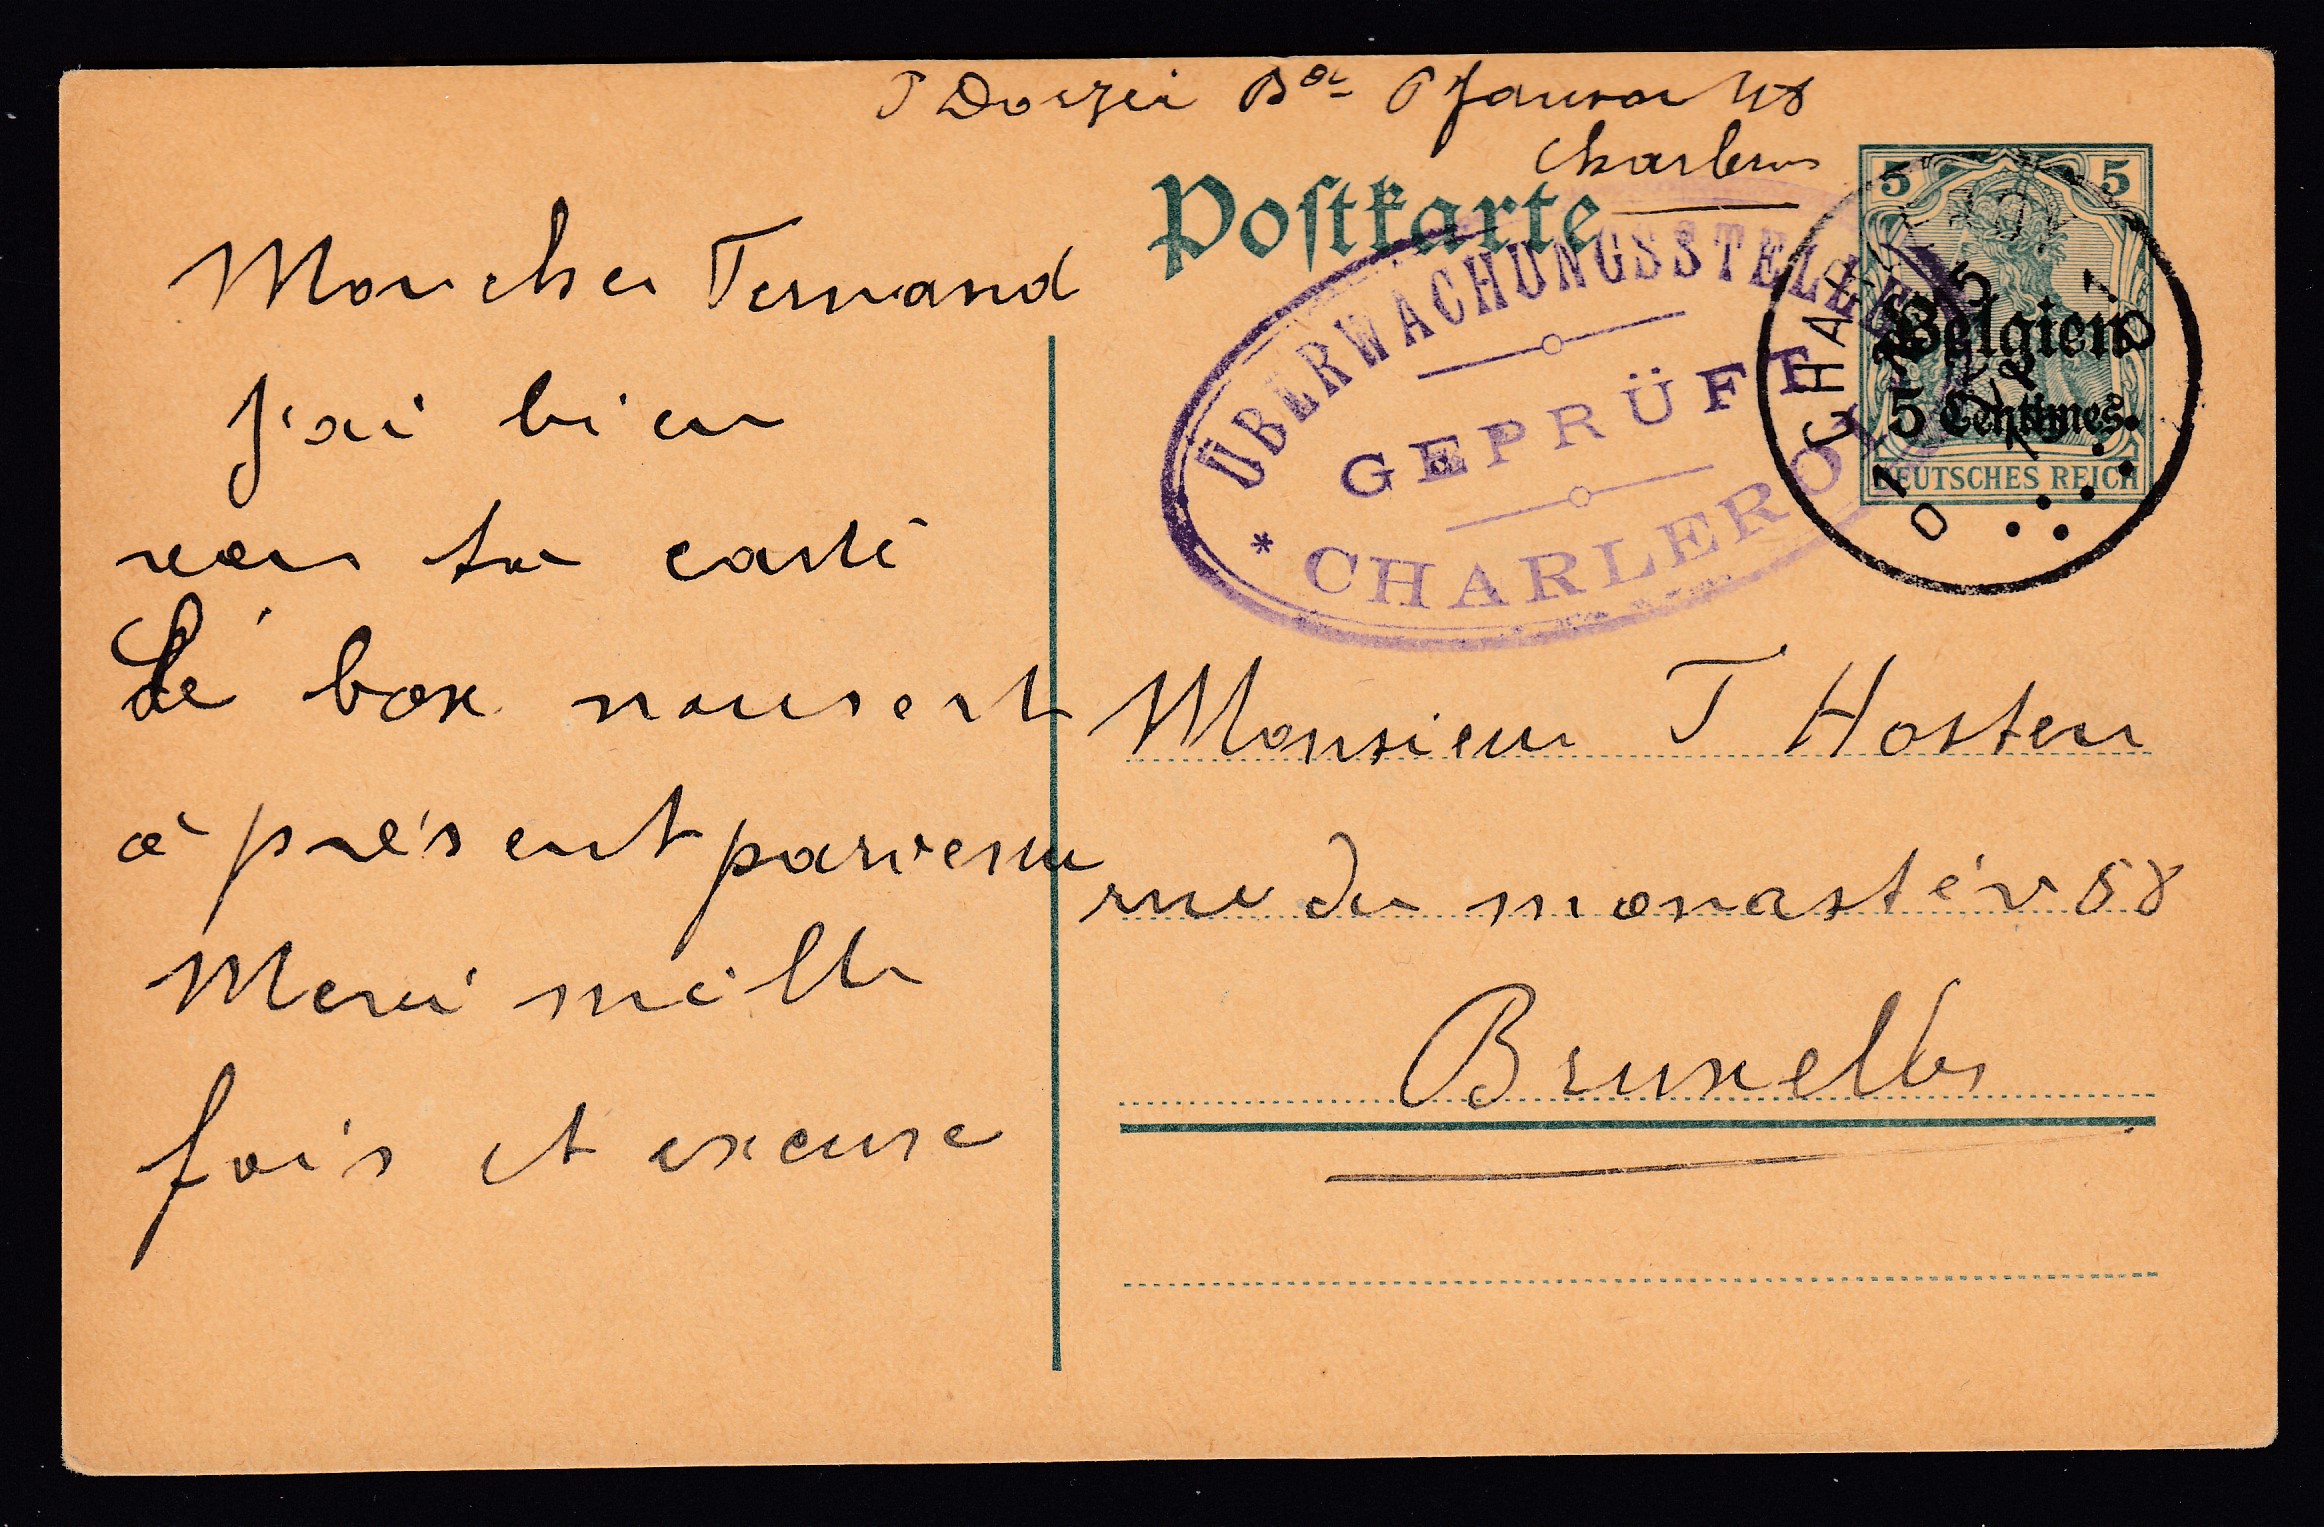 Bd P Janson 48
Charleroi
Postkarte
5 5
Belgien
5 Centimes.
DEUTSCHES REICH
ÜBERWACHUNGSSTELLE
GEPRÜFT
* CHARLEROI
CHARLEROI
Mon cher Fernand
J'ai bien
reçu ta carte
Le box nous est
à présent parvenu
Merci mille
fois et excuse
Monsieur F Hosten
rue du monastèr 58
Bruxelles